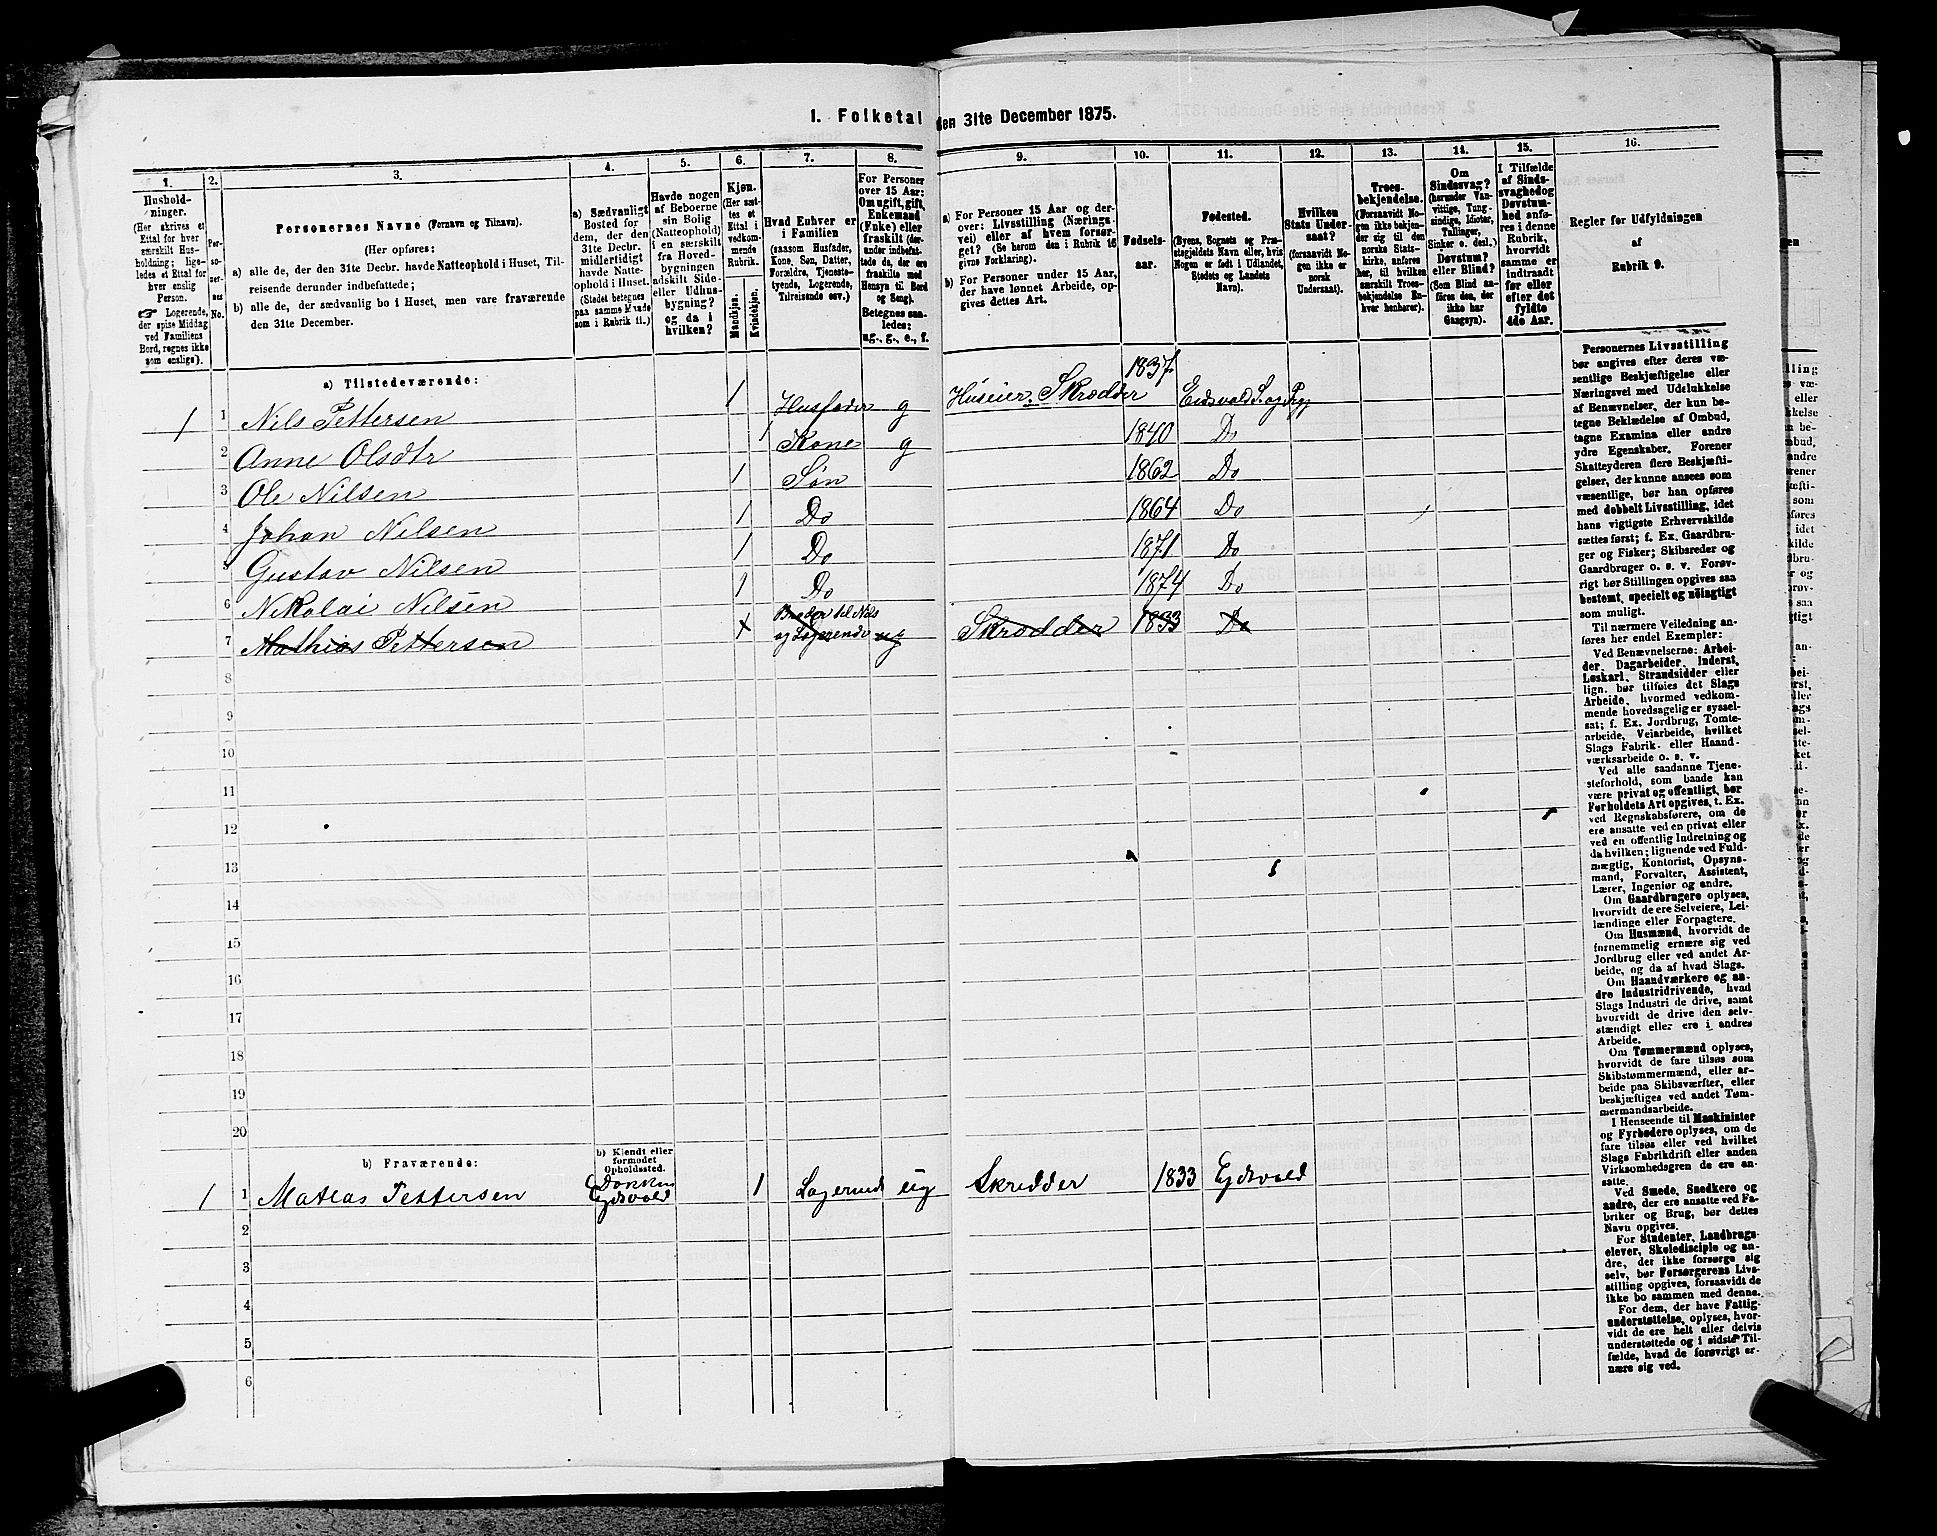 1. Folketal den 31te December 1875.
1. 2. 3. 4. 5. 6. 7. 8. 9. 10. 11. 12. 13. 14. 15. 16.
Hushold-
ninger.
(Her skrives et
Ettal for hver
særskilt Hus-
holdning; lige-
ledes et Ettal for
hver enslig
Person.
☞ Logerende,
der spise Middag
ved Familiens
Bord, regnes ikke
som enslige).
Per-
so-
ner-
nes
No.
Personernes Navne (Fornavn og Tilnavn).
(Her opføres:
a) alle de, der den 31te Decbr. havde Natteophold i Huset, Til-
reisende derunder indbefattede;
b) alle de, der sædvanlig bo i Huset, men vare fraværende
den 31te December.
a) Sædvanligt
Bosted for
dem, der den
31te Decbr.
midlertidigt
havde Natte-
ophold i Huset.
(Stedet betegnes
paa samme Maade
som i Rubrik 11.)
Havde nogen
af Beboerne
sin Bolig
(Natteophold)
i en særskilt
fra Hoved-
bygningen
adskilt Side-
eller Udhus-
bygning?
og da i
hvilken?
Kjøn.
(Her sæt-
tes et
Ettal i
vedkom-
mende
Rubrik.
Mandkjøn.
Kvindekjøn.
Hvad Enhver er
i Familien
(saasom Husfader,
Kone, Søn, Datter,
Forældre, Tjeneste-
tyende, Logerende,
Tilreisende osv.)
For Personer
over 15 Aar:
Om ugift, gift,
Enkemand
(Enke) eller
fraskilt (der-
under indbefat-
tede de, der ere
fraskilte med
Hensyn til Bord
og Seng).
Betegnes saa-
ledes:
ug., g., e., f.
a) For Personer 15 Aar og der-
over: Livsstilling (Nærings-
vei) eller af hvem forsør-
get? (Se herom den i Rubrik 16
givne Forklaring).
b) For Personer under 15 Aar,
der have lønnet Arbeide, op-
gives dettes Art.
Fødsels-
aar.
Fødested.
(Byens, Sognets og Præ-
stegjeldets Navn eller, hvis
Nogen er født i Udlandet,
Stedets og Landets
Navn).
Hvilken
Stats Under-
saat?
(forsaavidt No-
gen ikke er
norsk
Undersaat).
Troes-
bekjendelse.
(Forsaavidt No-
gen ikke bekjen-
der sig til den
norske Stats-
kirke, anføres
her, til hvilken
særskilt Troes-
bekjendelse En-
hver henhører).
Om
Sindssvag?
(herunder Van-
vittige, Tung-
sindige, Idioter,
Tullinger,
Sinker o. desl.)
Døvstum?
eller Blind?
(Som Blind an-
føres den, der
ikke har
Gangsyn).
I Tilfælde
af Sinds-
svaghed og
Døvstum-
hed anfø-
res i denne
Rubrik,
hvorvidt
samme er
indtraadt
før eller
efter det
fyldte
4de Aar.
Regler for Udfyldningen
af
Rubrik 9.
a) Tilstedeværende:
1 1 Nils Pettersen 1 Husfader g Huseier, Skrædder 1837 Eidsvold S. og Prg
2 Anne Olsdtr 1 Kone g 1840 Do
3 Ole Nilsen 1 Søn 1862 Do
4 Johan Nilsen 1 Do 1864 Do
5 Gustav Nilsen 1 Do 1871 Do
6 Nikolai Nilsen 1 Do 1874 Do
7 Mathias Pettersen Broder til Nils og Logerende ug Skrædder 1833 Do
8
9
10
11
12
13
14
15
16
17
18
19
20
b) Fraværende:
b) Kjendt eller
formodet
Opholdssted.
1 1 Matias Pettersen Eydsvold 1 Logerend ug Skredder 1833 Eydsvold
2
3
4
5
6
Personernes Livsstilling
bør angives efter deres væ-
sentlige Beskjæftigelse eller
Næringsvei med Udelukkelse
af Benævnelser, der kun be-
tegne Beklædelse af Ombud,
tagne Examina eller andre
ydre Egenskaber. Forener
Skatteyderen flere Beskjæfti-
gelser, der kunne ansees som
væsentlige, bør han opføres
med dobbelt Livsstilling, idet
hans vigtigste Erhvervskilde
sættes først; f. Ex. Gaardbru-
ger og Fisker; Skibsreder og
Gaardbruger o. s. v. Forøv-
rigt bør Stillingen opgives saa
bestemt, specielt og nøiagtigt
som muligt.
Til nærmere Veiledning an-
føres her endel Exempler:
Ved Benævnelserne: Arbei-
der, Dagarbeider, Inderst,
Løskarl, Strandsidder eller
lign. bør tilføies det Slags
Arbeide, hvormed vedkom-
mende hovedsagelig er syssel-
sat; f. Ex. Jordbrug, Tomte-
arbeide, Veiarbeide, hvilket
Slags Fabrik- eller Haand-
værksarbeide o. s. v.
Ved alle saadanne Tjene-
steforhold, som baade kan
være privat og offentligt, bør
Forholdets Art opgives, t. Ex.
ved Regnskabsførere, om de
ere ansatte ved en privat eller
ved en offentlig Indretning og
da hvilken; lignende ved Fuld-
mægtig, Kontorist, Opsyns-
mand, Forvalter, Assistent,
Lærer, Ingeniør og andre.
Om Gaardbrugere oplyses,
hvorvidt de ere Selveiere, Lei-
lændinge eller Forpagtere.
Om Husmænd, hvorvidt de
fornemmelig ernære sig ved
Jordbrug eller ved andet Ar-
beide, og da af hvad Slags.
Om Haandværkere og an-
dre Industridrivende, hvad
Slags Industri de drive, samt
hvorvidt de drive den selv-
stændigt eller ere i andres
Arbeide.
Om Tømmermænd oplyses,
hvorvidt de fare tilsøs som
Skibstømmermænd, eller ar-
beide paa Skibsværfter, eller
beskjæftiges ved andet Tøm-
mermandsarbeide.
I Henseende til Maskinister
og Fyrbødere oplyses, om de
fare tilsøs eller ved hvilket
Slags Fabrikdrift eller anden
Virksomhedsgren de ere an-
satte.
Ved Smede, Snedkere og
andre, der ere ansatte ved Fa-
briker og Brug, bør dettes
Navn opgives.
For Studenter, Landbrugs-
elever, Skoledisciple og an-
dre, der ikke forsørge sig
selv, bør Forsørgerens Livs-
stilling opgives, forsaavidt de
ikke bo sammen med denne.
For dem, der have Fattig-
understøttelse, oplyses, hvor-
vidt de ere helt eller delvis
understøttede og i sidste Til-
fælde, hvad de forøvrigt er-
nære sig ved.